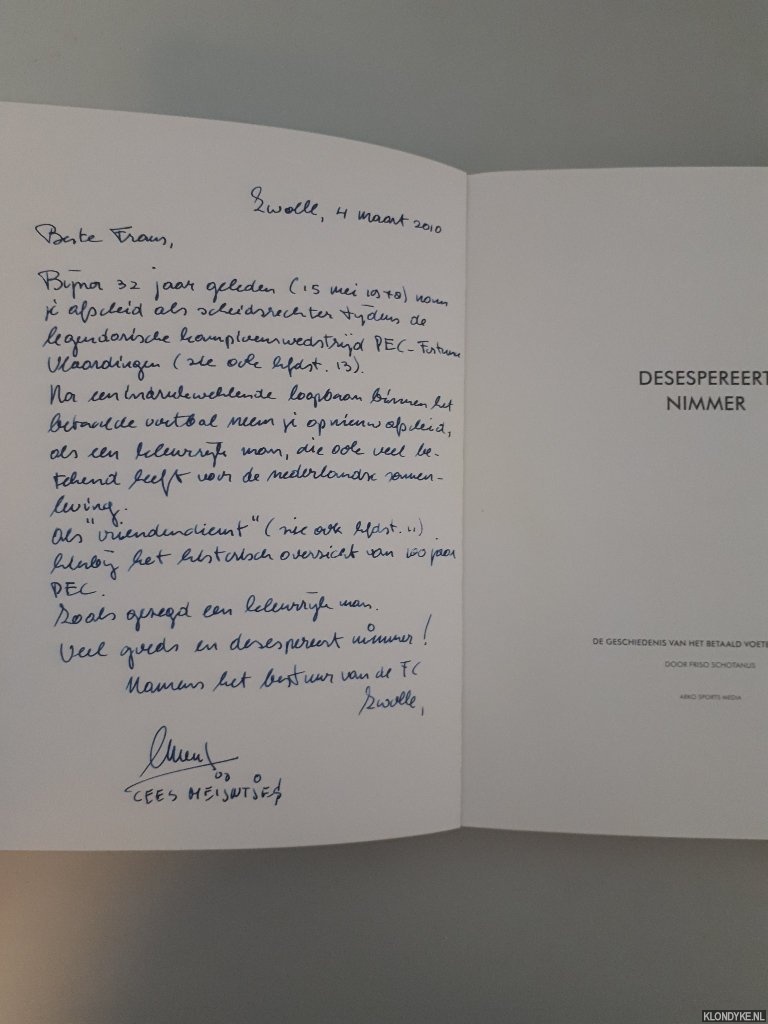 Zwolle, 4 maart 2010
Beste Frans,
Bijna 32 jaar geleden (15 mei 1978) nam
je afscheid als scheidsrechter tijdens de
legendarische kampioenswedstrijd PEC-Fortuna
Vlaardingen (zie ook hfdst. 13).
Na een indrukwekkende loopbaan binnen het
betaalde voetbal neem je opnieuw afscheid,
als een kleurrijk man, die ook veel be-
tekend heeft voor de nederlandse samen-
leving.
Als "vriendendienst" (zie ook hfdst. 11)
hierbij het historisch overzicht van 100 jaar
PEC.
Zoals gezegd een kleurrijk man.
Veel goeds en desespereert nimmer!
Namens het bestuur van de FC
Zwolle,
CEES MEIJNTJES
DESESPEREERT
NIMMER
DE GESCHIEDENIS VAN HET BETAALD VOETB
DOOR FRISO SCHOTANUS
ARKO SPORTS MEDIA
KLONDYKE.NL